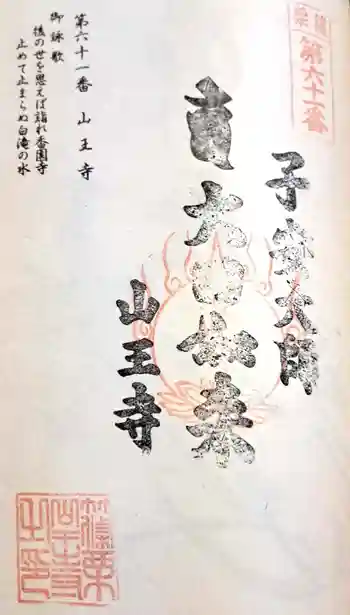 第六十一番
子安大師
大日如来
山王寺
第六十一番 山王寺
御詠歌
後の世を思えば詣れ香園寺
止めて止まらぬ白滝の水
篠栗山王寺之印